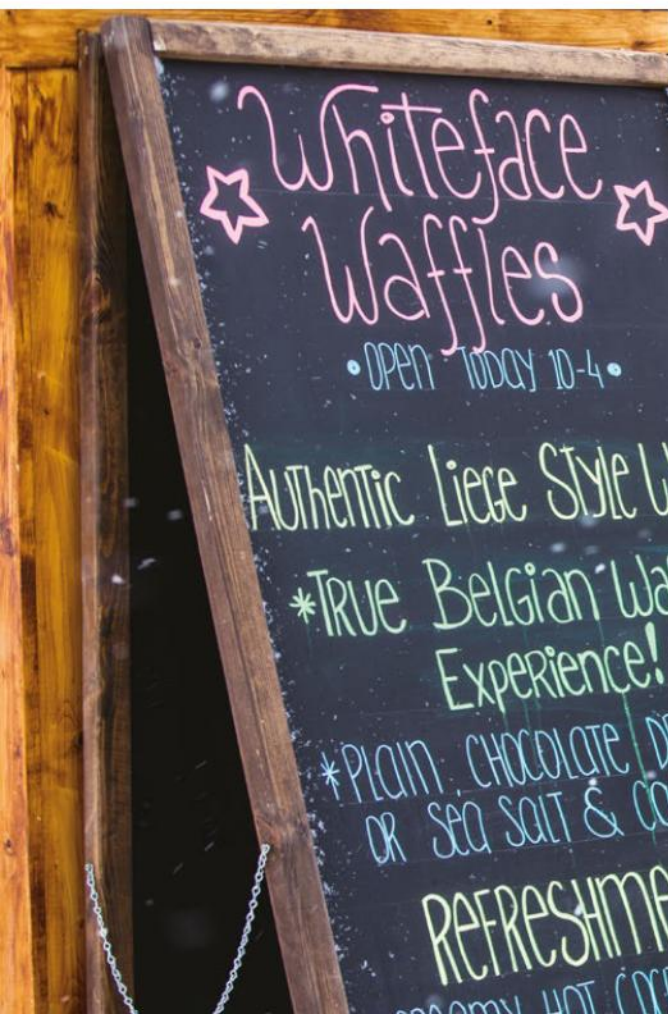 Whiteface
Waffles
OPEN TODAY 10-4
AUTHENTIC LIEGE STYLE
*TRUE BELGIAN
EXPERIENCE!
*PLAIN, CHOCOLATE
OR SEA SALT &
HOT